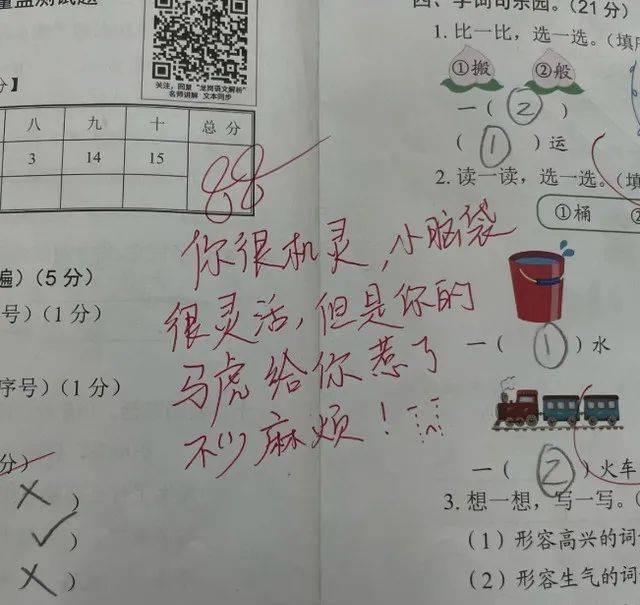 量监测试题
关注，回复“龙岗语文解析”
名师讲解 文本同步
分】
八 九 十 总 分
3 14 15
88
你很机灵，小脑袋
很灵活，但是你的
马虎给你惹了
不少麻烦！
遍）（5 分）
号）（1 分）
序号）（1 分）
分）
× ）
✓ ）
× ）
四、字词句乐园。（21 分）
1. 比一比，选一选。（填序
①搬 ②般
一（ ② ）
（ ① ）运
2. 读一读，选一选。（填
①桶 ②
一（ ① ）水
一（ ② ）火车
3. 想一想，写一写。（
（1）形容高兴的词
（2）形容生气的词